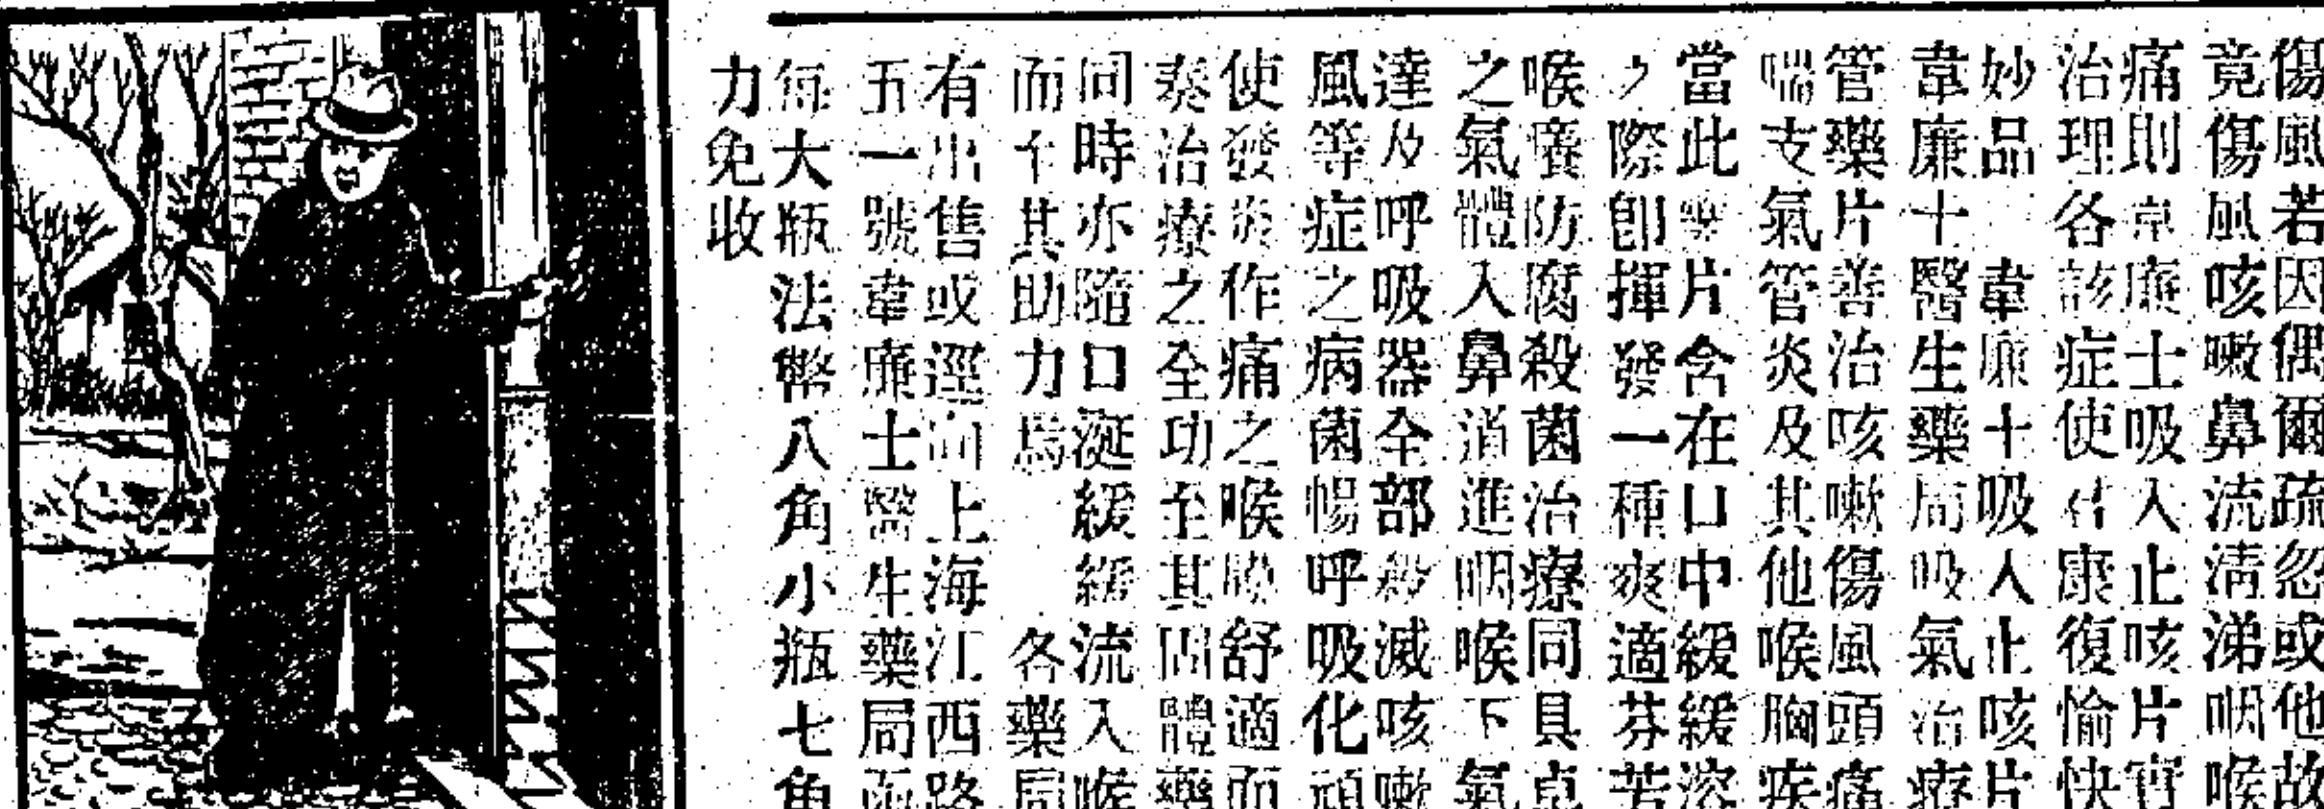 傷風若因偶爾疏忽或他故
竟傷風咳嗽鼻流清涕咽喉
痛則韋廉士吸入止咳片實
治理各該症使君康復愉快
妙品 韋廉士吸入止咳片
韋廉士醫生藥局吸氣治療
管藥片善治咳嗽傷風頭痛
喘支氣管炎及其他喉胸疾
當此藥片含在口中緩緩溶
之際卽揮發一種爽適芬芳
喉囊防腐殺菌治療同具卓
之氣體入鼻消進咽喉下氣
達及呼吸器全部殺滅咳嗽
風等症之病菌暢呼吸化頑
使發炎作痛之喉膜舒適而
奏治療之全功至其固體藥
同時亦隨口涎緩緩流入喉
而生其助力焉 各藥局
有出售或逕向上海江西路
五一號韋廉士醫生藥局函
每大瓶法幣八角小瓶七角
力免收